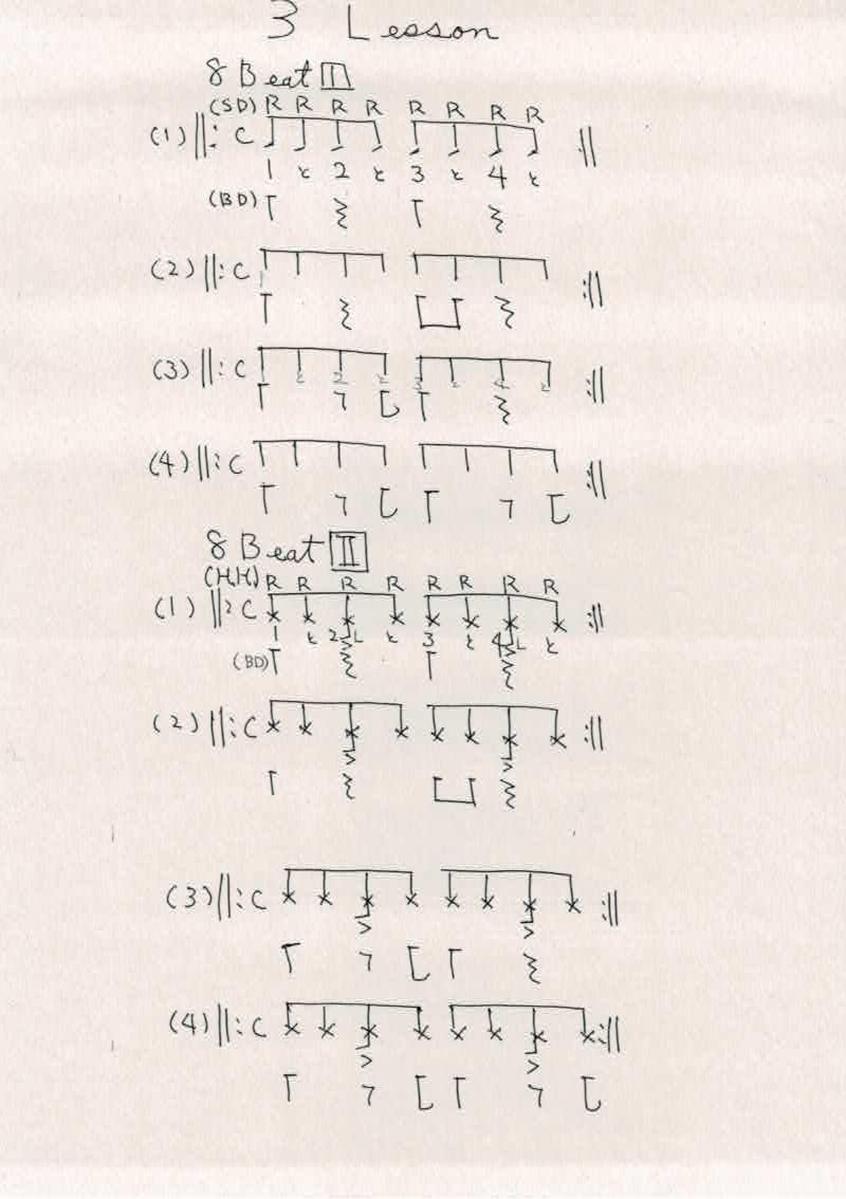 3 Lesson
8 Beat Ⅰ
(SD) R R R R R R R R
(1) C
1 と 2 と 3 と 4 と
(BD)
(2) C
(3) C
と 2 と 3 と 4 と
(4) C
8 Beat Ⅱ
(H.H) R R R R R R R R
(1) C
1 と 2 L と 3 と 4 L と
(BD)
(2) C
(3) C
(4) C